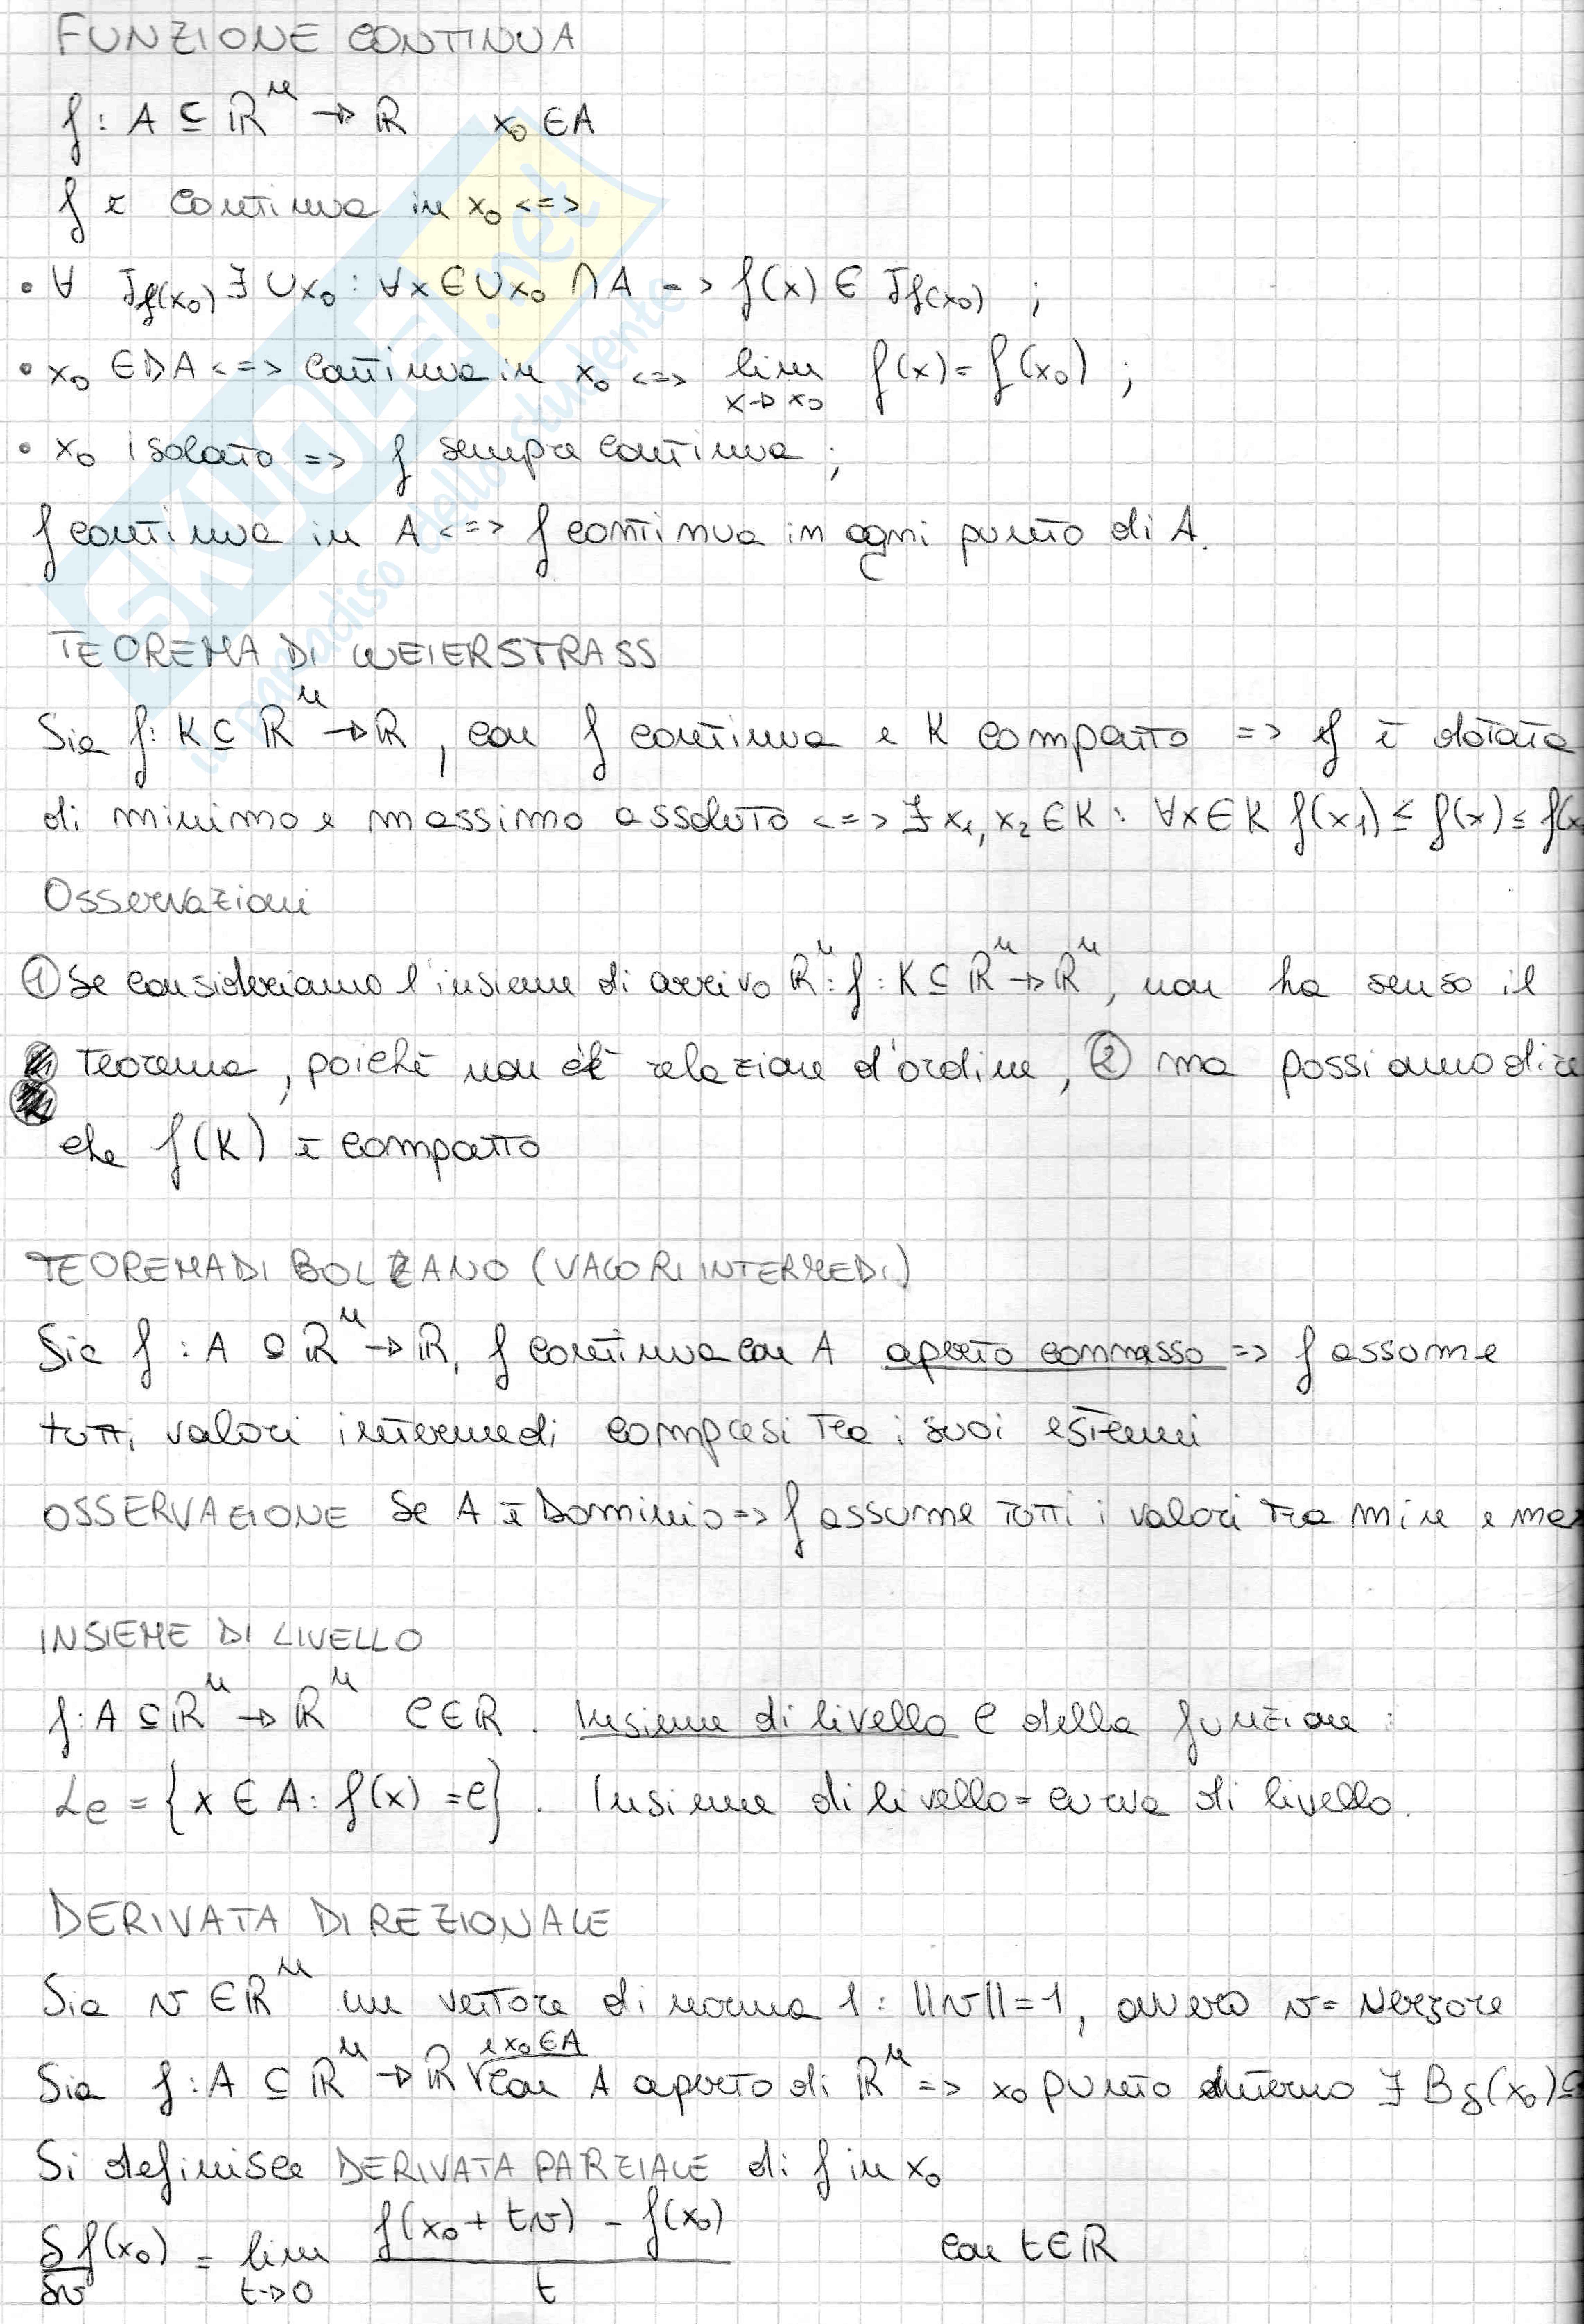 FUNZIONE CONTINUA
f: A ⊆ ℝⁿ → ℝ x₀ ∈ A
f è continua in x₀ <=>
• ∀ J_f(x₀) ∃ U_x₀ : ∀x ∈ U_x₀ ∩ A => f(x) ∈ J_f(x₀) ;
• x₀ ∈ DA <=> continua in x₀ <=> lim x→x₀ f(x) = f(x₀) ;
• x₀ isolato => f sempre continua ;
f continua in A <=> f continua in ogni punto di A.
TEOREMA DI WEIERSTRASS
Sia f: K ⊆ ℝⁿ → ℝ, con f continua e K compatto => f è dotata
di minimo e massimo assoluto <=> ∃ x₁, x₂ ∈ K : ∀x ∈ K f(x₁) ≤ f(x) ≤ f(x
Osservazioni
① Se consideriamo l'insieme di arrivo ℝⁿ: f: K ⊆ ℝⁿ → ℝⁿ, non ha senso il
teorema, poichè non c'è relazione d'ordine, ② ma possiamo dire
che f(K) è compatto
TEOREMA DI BOLZANO (VALORI INTERMEDI)
Sia f: A ⊆ ℝⁿ → ℝ, f continua con A aperto connesso => f assume
tutti valori intermedi compresi tra i suoi estremi
OSSERVAZIONE Se A è Dominio => f assume tutti i valori tra min e max
INSIEME DI LIVELLO
f: A ⊆ ℝⁿ → ℝⁿ C ∈ ℝ. Insieme di livello C della funzione :
L_C = {x ∈ A : f(x) = C}. Insieme di livello = curva di livello.
DERIVATA DIREZIONALE
Sia v ∈ ℝⁿ un vettore di norma 1 : ||v|| = 1, ovvero v = versore
Sia f: A ⊆ ℝⁿ → ℝ e x₀ ∈ A con A aperto di ℝⁿ => x₀ punto interno ∃ Bδ(x₀) ⊆
Si definisce DERIVATA PARZIALE di f in x₀
δf/δv (x₀) = lim t→0 (f(x₀ + tv) - f(x₀))/t con t ∈ ℝ
SKUOLA.net
il paradiso dello studente